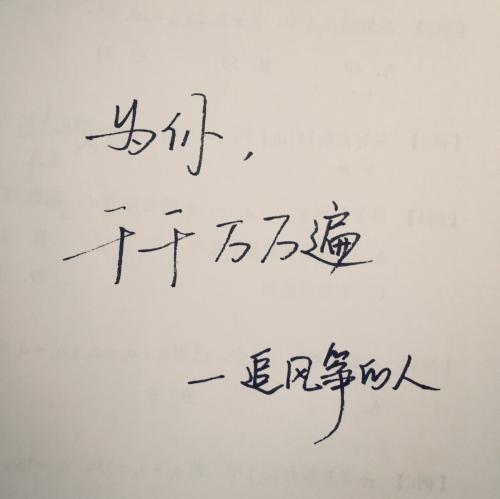 为你,
千千万万遍
一追风筝的人